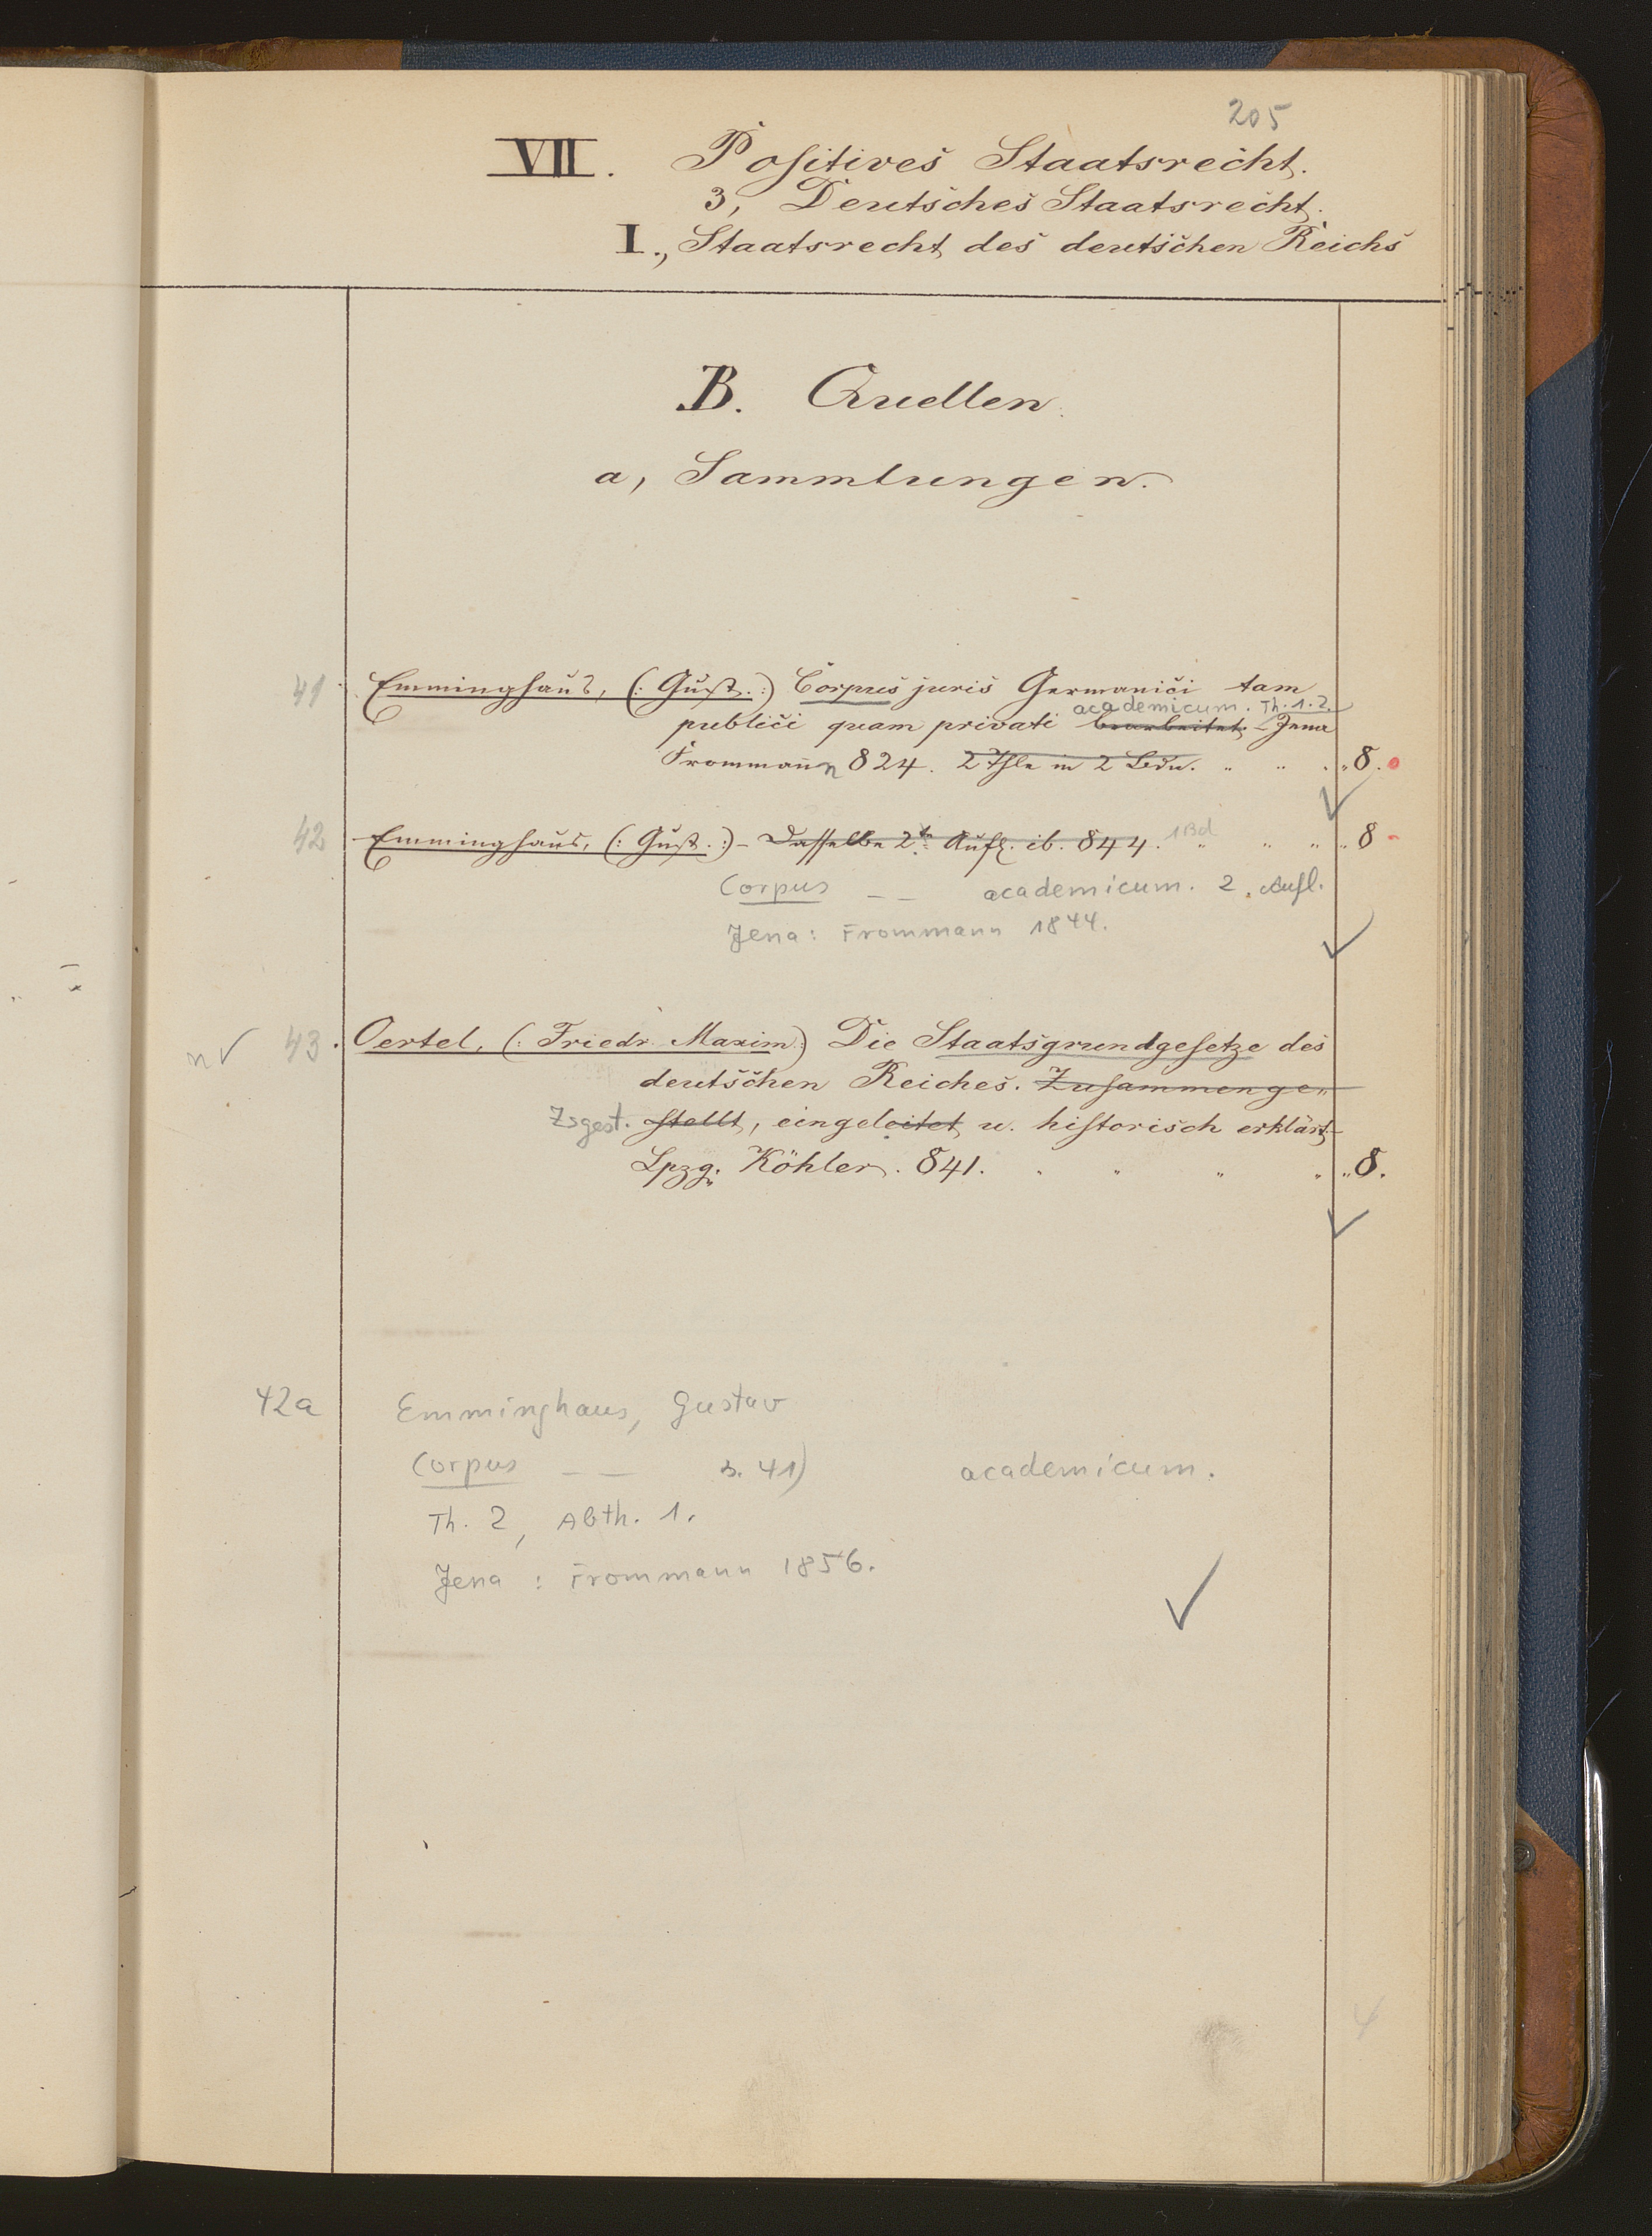 205
VII. Positives Staatsrecht.
3, Deutsches Staatsrecht.
I., Staatsrecht des deutschen Reichs
B. Quellen.
a, Sammlungen.
41 Emminghaus, (: Gust. :) Corpus juris Germanici tam
academicum. Th. 1. 2.
publici quam privati bearbeitet. – Jena
Frommann 824. 2 Thle in 2 Bdn. " " . " 8.
42 Emminghaus, (: Gust. :) – Dasselbe 2te Aufl. ib. 844. 1 Bd " " " " 8
Corpus — — academicum. 2. Aufl.
Jena: Frommann 1844.
n ✓ 43. Oertel, (: Friedr. Maxim :) Die Staatsgrundgesetze des
deutschen Reiches. Zusammenge„
Zsgest. stellt, eingeleitet u. historisch erklärt –
Lpzg. Köhler. 841. " " " " " 8.
42a Emminghaus, Gustav
Corpus — — s. 41) academicum.
Th. 2, Abth. 1.
Jena : Frommann 1856.